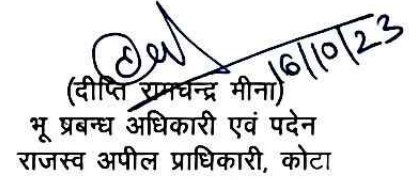 16/10/23
(दीप्ति रामचन्द्र मीना)
भू प्रबन्ध अधिकारी एवं पदेन
राजस्व अपील प्राधिकारी, कोटा